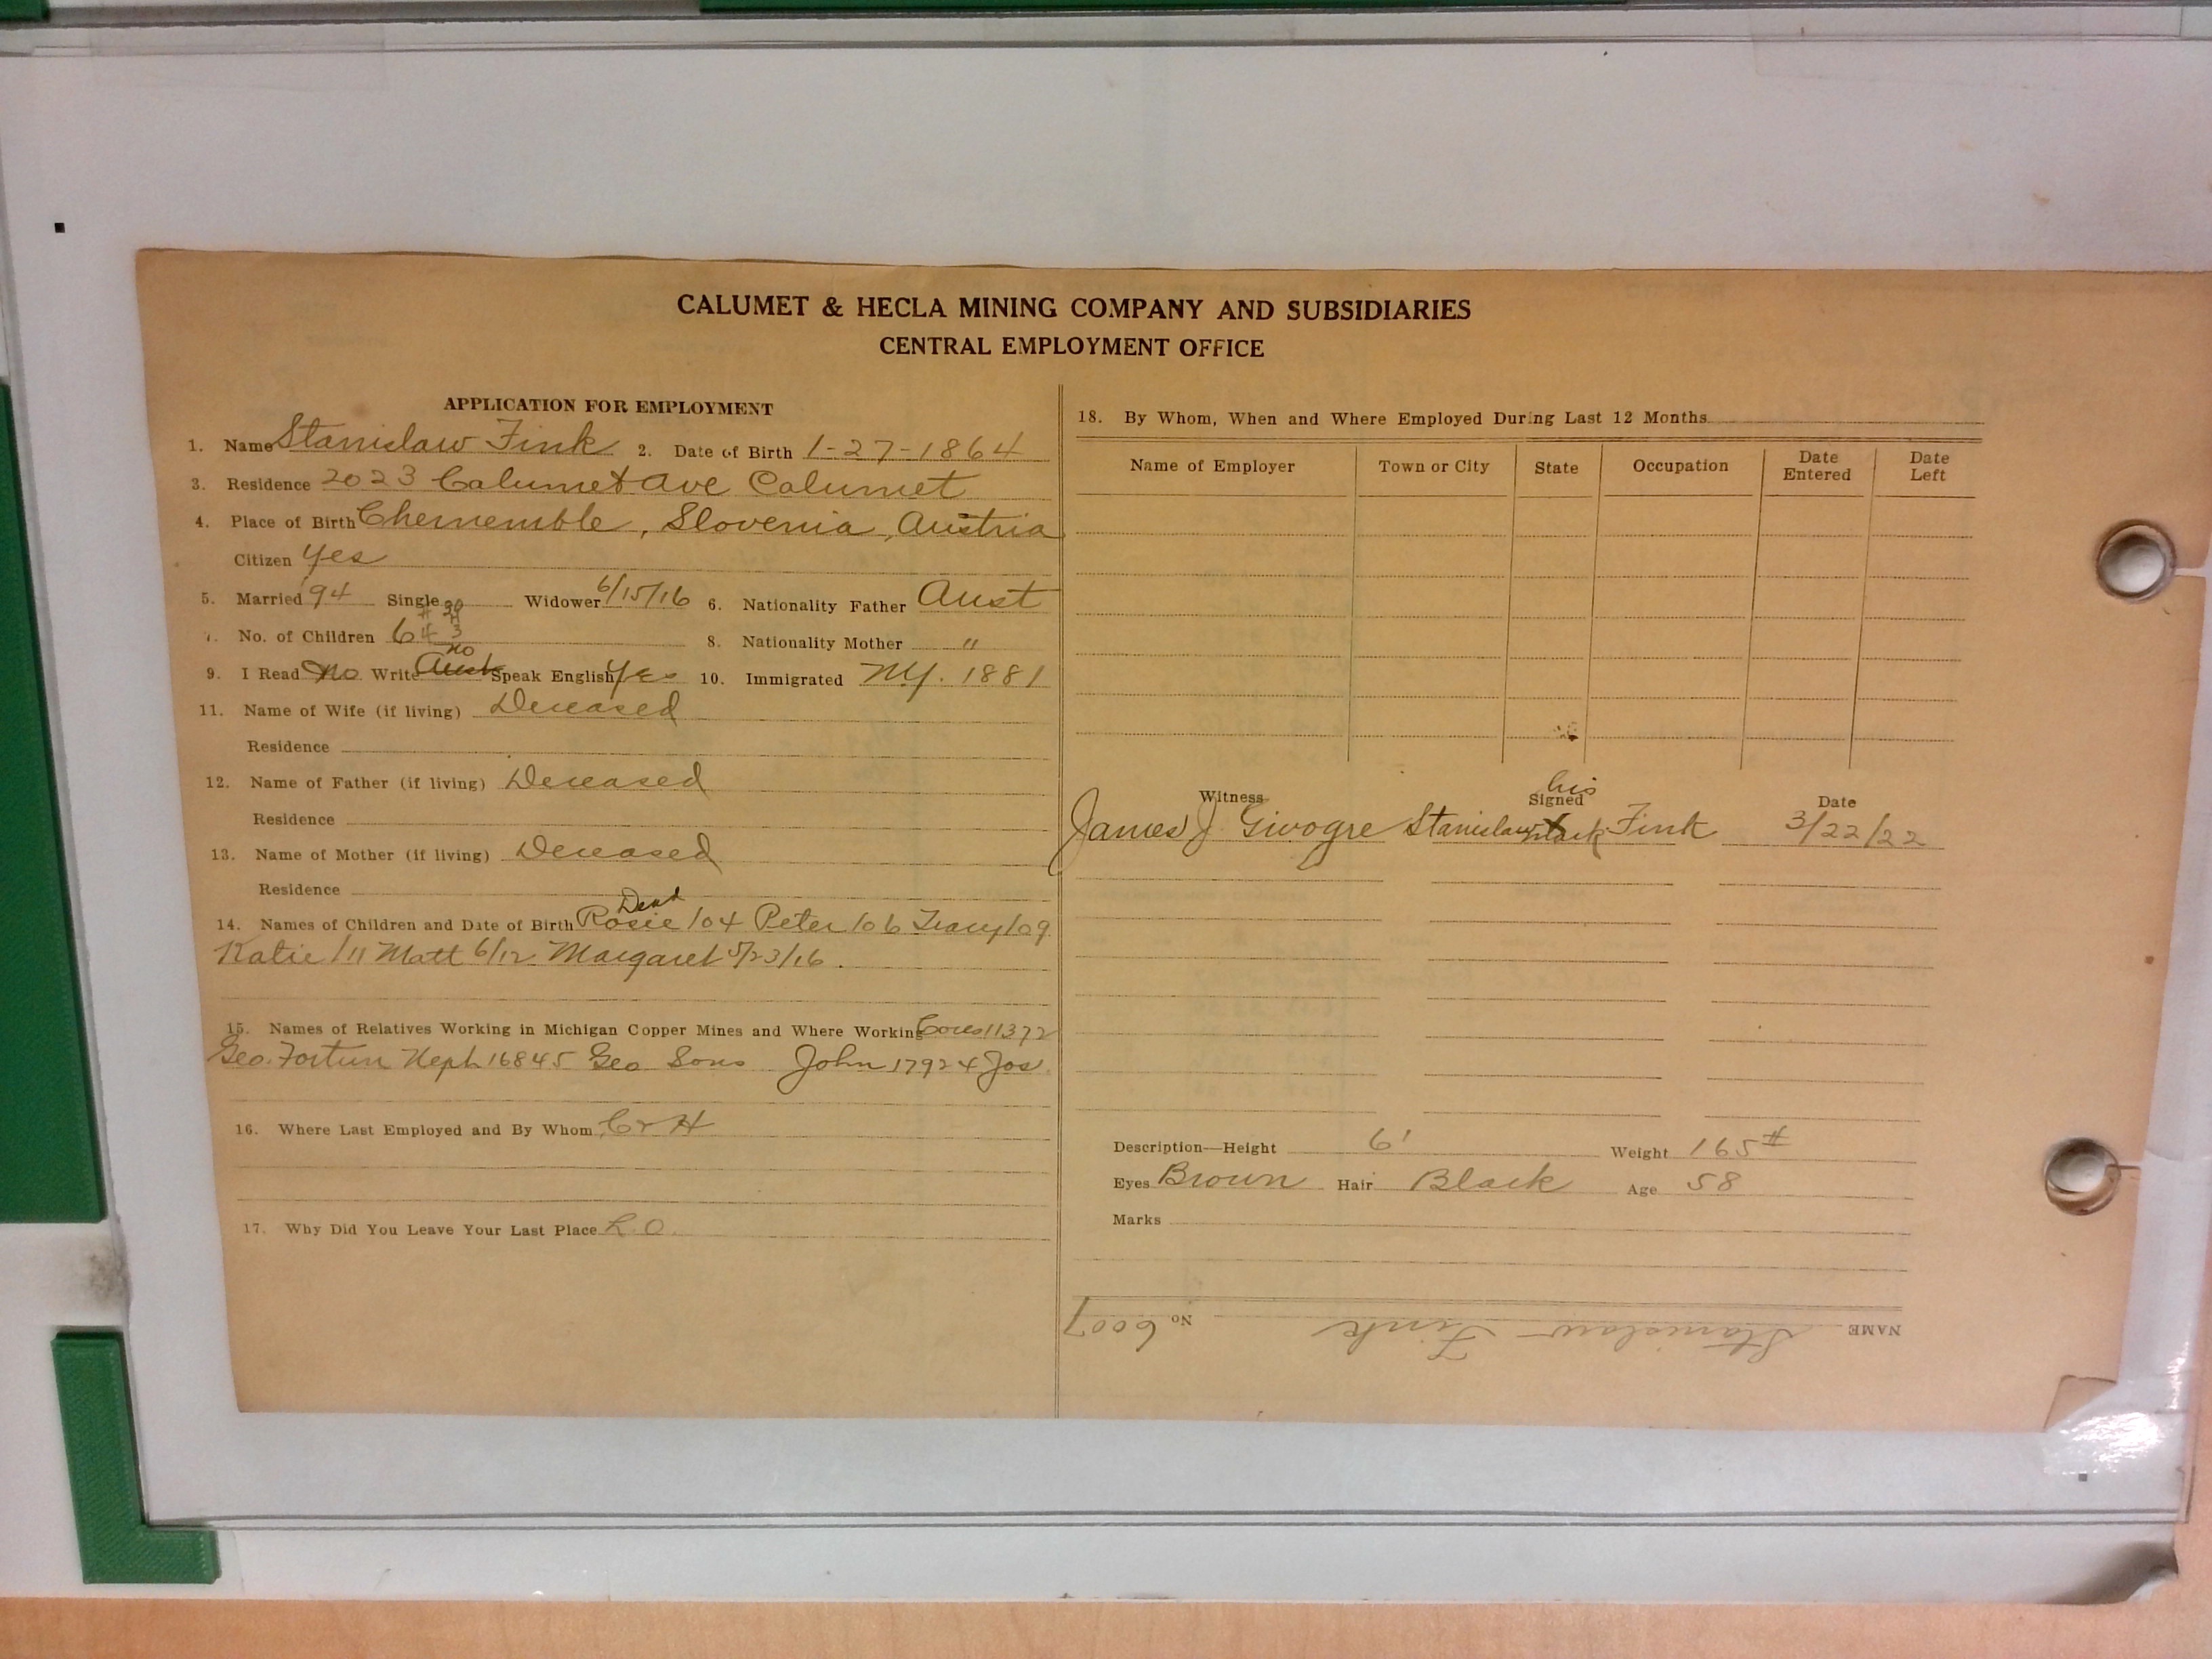 CALUMET & HECLA MINING COMPANY AND SUBSIDIARIES
CENTRAL EMPLOYMENT OFFICE
APPLICATION FOR EMPLOYMENT
1. Name Stanislaw Fink 2. Date of Birth 1-27-1864
3. Residence 2023 Calumet Ave Calumet
4. Place of Birth Chernemble, Slovenia, Austria
Citizen Yes
5. Married 94 Single Widower 6/15/16 6. Nationality Father Aust
7. No. of Children 6 4 3 8. Nationality Mother "
9. I Read No Write no Speak English Yes 10. Immigrated NY. 1881
11. Name of Wife (if living) Deceased
Residence
12. Name of Father (if living) Deceased
Residence
13. Name of Mother (if living) Deceased
Residence
Dead
14. Names of Children and Date of Birth Rosie /04 Peter /06 /09
Katie /11 Matt 6/12 Margaret 5/23/16.
15. Names of Relatives Working in Michigan Copper Mines and Where Working 11372
Geo. Fortun Neph 16845 Geo Sons John 17924 Jos.
16. Where Last Employed and By Whom C & H
17. Why Did You Leave Your Last Place L.O.
18. By Whom, When and Where Employed During Last 12 Months
Name of Employer Town or City State Occupation Date Entered Date Left
Witness Signed Date
his
James J Givogre Stanislaw X mark Fink 3/22/22
Description—Height 6' Weight 165#
Eyes Brown Hair Black Age 58
Marks
NAME Stanislaw Fink No. 6007